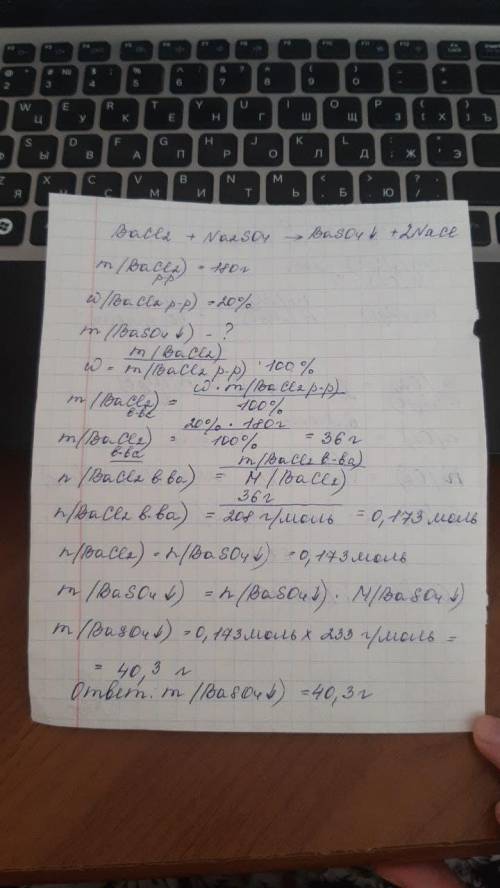 BaCl2 + Na2SO4 → BaSO4↓ + 2NaCl
m/BaCl2) = 180г
р-р
ω/BaCl2 р-р) = 20%
m/BaSO4↓) - ?
ω = m/BaCl2) / m/BaCl2 р-р) · 100%
m/BaCl2) = ω · m/BaCl2 р-р) / 100%
в-ва
m/BaCl2) = 20% · 180г / 100% = 36г
в-ва
n/BaCl2 в-ва) = m/BaCl2 в-ва) / M/BaCl2)
n/BaCl2 в-ва) = 36г / 208 г/моль = 0,173 моль
n/BaCl2) = n/BaSO4↓) = 0,173моль
m/BaSO4↓) = n/BaSO4↓) · M/BaSO4)
m/BaSO4↓) = 0,173моль x 233 г/моль =
= 40,3 г
Ответ: m/BaSO4↓) = 40,3г